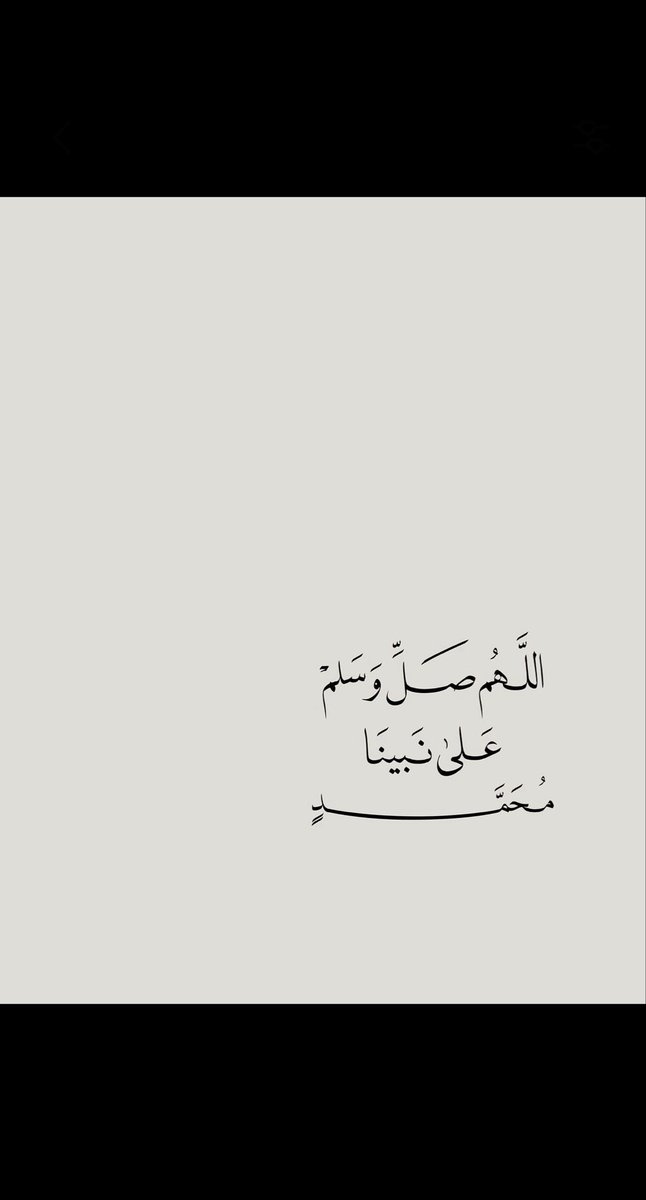 اللَّهُم صَلِّ وَسَلمْ
عَلىٰ نَبينَا
مُحَمَّدٍ